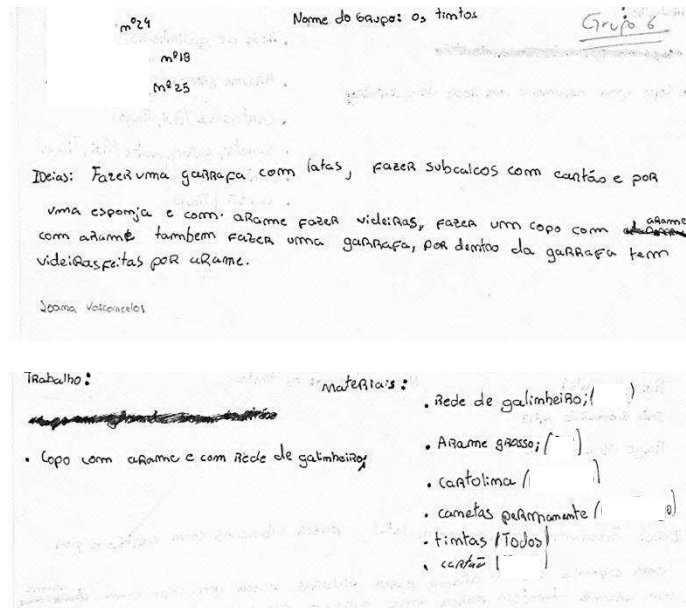 nº24
Nome do Grupo: os tintos
Grupo 6
nº18
nº25
Ideias: Fazer uma garrafa com latas, fazer subcalcos com cartão e por
uma esponja e com arame fazer videiras, fazer um copo com arame,
com arame tambem fazer uma garrafa, por dentro da garrafa tem
videiras feitas por arame.
Joana Vasconcelos
Trabalho:
Materiais:
. Rede de galinheiro; ( )
. Arame grosso; ( )
. Copo com arame e com Rede de galinheiro;
. cartolina ( )
. canetas permanente ( o)
. tintas (Todos)
. cartão ( )